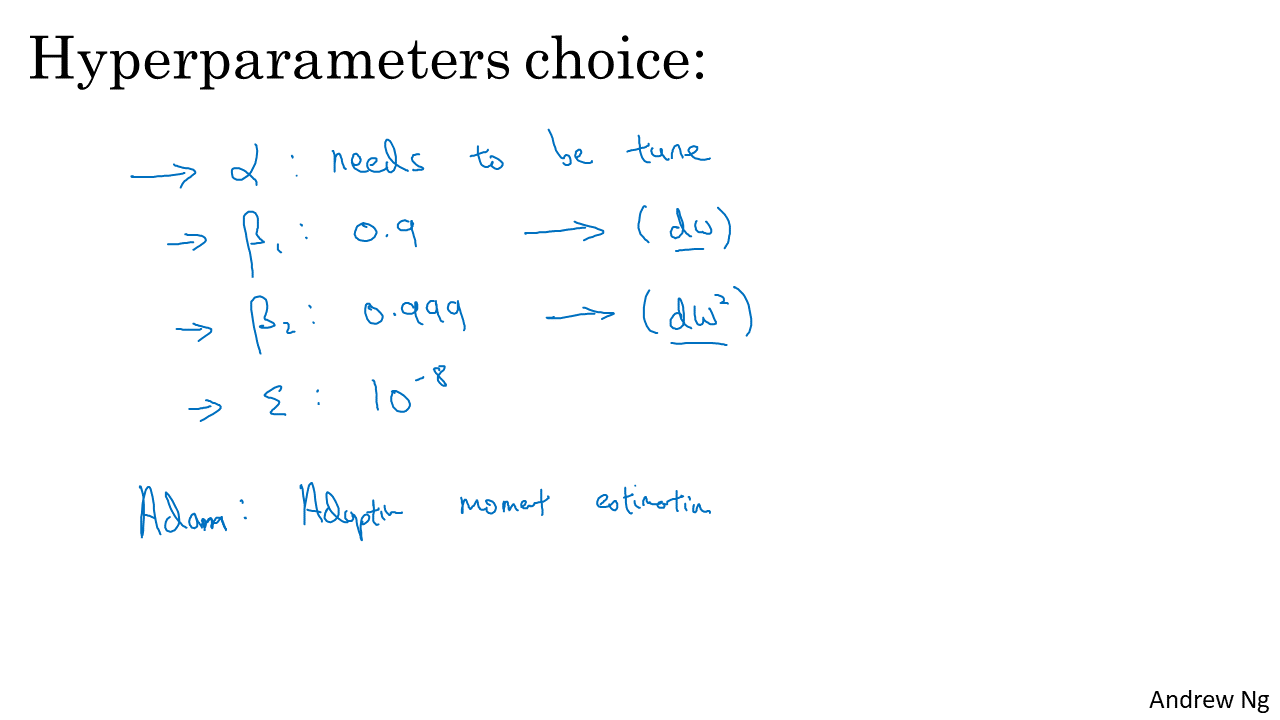 Hyperparameters choice:
→ α : needs to be tune
→ β₁ : 0.9 → (dw)
→ β₂ : 0.999 → (dw²)
→ ε : 10⁻⁸
Adam : moment estimation
Andrew Ng